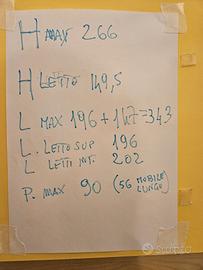 H max 266
H LETTO 149,5
L MAX 196 + 147 = 343
L. LETTO SUP 196
L LETTI INT. 202
P. MAX 90 (56 MOBILE
LUNGO)
Subito